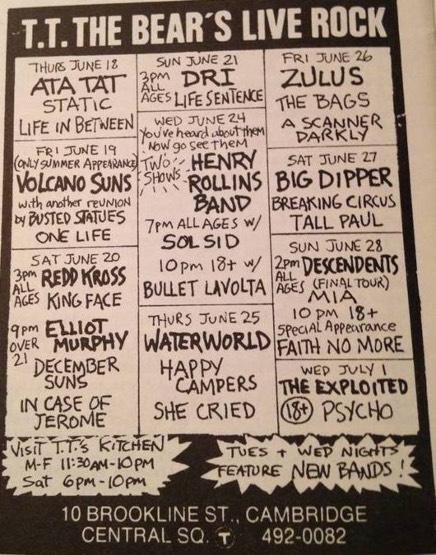 T.T. THE BEAR'S LIVE ROCK
THURS JUNE 18
ATA TAT
STATIC
LIFE IN BETWEEN
FRI JUNE 19
(ONLY SUMMER APPEARANCE)
VOLCANO SUNS
with another reunion
by BUSTED STATUES
ONE LIFE
SAT JUNE 20
3pm ALL AGES REDD KROSS
KING FACE
9pm OVER 21 ELLIOT MURPHY
DECEMBER SUNS
IN CASE OF JEROME
SUN JUNE 21
3pm ALL AGES DRI
LIFE SENTENCE
WED JUNE 24
You've heard about them
Now go see them
TWO SHOWS HENRY ROLLINS BAND
7pm ALL AGES w/
SOL SID
10pm 18+ w/
BULLET LAVOLTA
THURS JUNE 25
WATERWORLD
HAPPY CAMPERS
SHE CRIED
FRI JUNE 26
ZULUS
THE BAGS
A SCANNER DARKLY
SAT JUNE 27
BIG DIPPER
BREAKING CIRCUS
TALL PAUL
SUN JUNE 28
2pm ALL AGES DESCENDENTS
(FINAL TOUR)
MIA
10 PM 18+
Special Appearance
FAITH NO MORE
WED JULY 1
THE EXPLOITED
18+ PSYCHO
VISIT T.T.'s KITCHEN
M-F 11:30AM-10PM
Sat 6pm-10pm
TUES + WED NIGHTS
FEATURE NEW BANDS!
10 BROOKLINE ST., CAMBRIDGE
CENTRAL SQ. T 492-0082